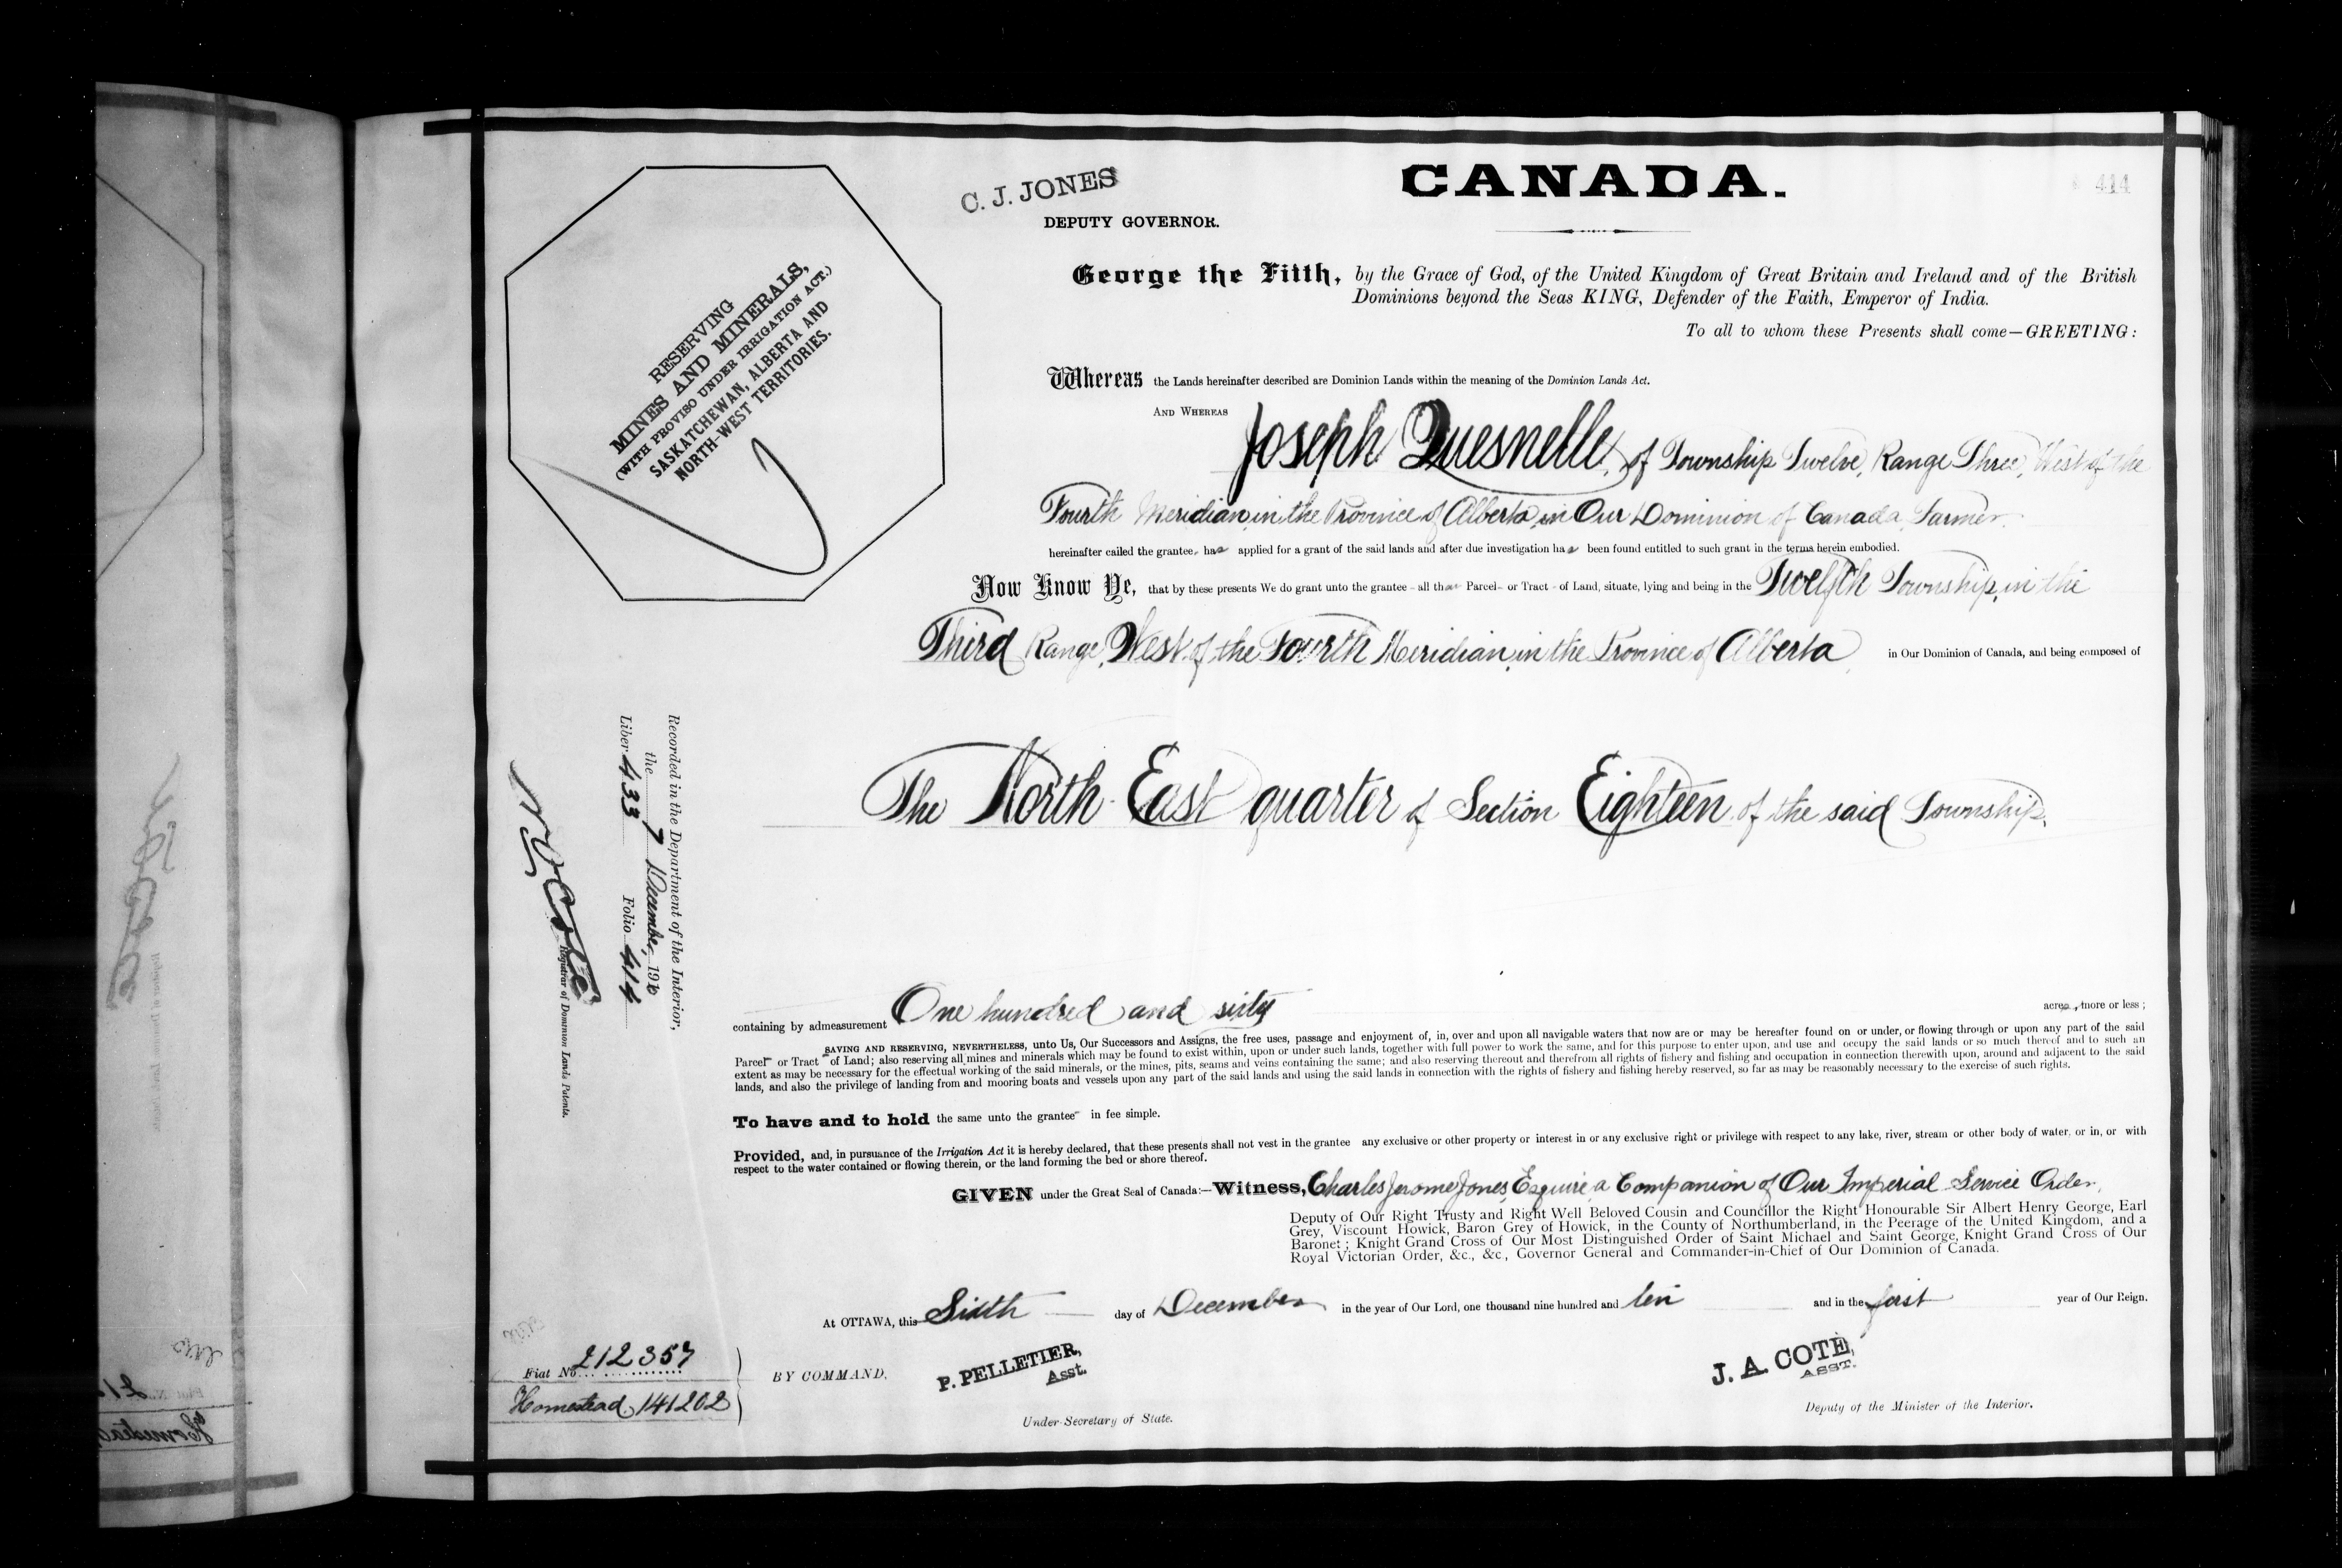 414
C. J. JONES
DEPUTY GOVERNOR.
CANADA.
RESERVING
MINES AND MINERALS,
(WITH PROVISO UNDER IRRIGATION ACT.)
SASKATCHEWAN, ALBERTA AND
NORTH-WEST TERRITORIES.
George the Fifth, by the Grace of God, of the United Kingdom of Great Britain and Ireland and of the British
Dominions beyond the Seas KING, Defender of the Faith, Emperor of India.
To all to whom these Presents shall come—GREETING:
Whereas the Lands hereinafter described are Dominion Lands within the meaning of the Dominion Lands Act.
AND WHEREAS Joseph Quesnelle, of Township Twelve, Range Three, West of the
Fourth Meridian, in the Province of Alberta, in Our Dominion of Canada, Farmer.
hereinafter called the grantee, has applied for a grant of the said lands and after due investigation has been found entitled to such grant in the terms herein embodied.
Now Know Ye, that by these presents We do grant unto the grantee all that Parcel or Tract of Land, situate, lying and being in the Twelfth Township, in the
Third Range, West of the Fourth Meridian, in the Province of Alberta, in Our Dominion of Canada, and being composed of
The North East quarter of Section Eighteen of the said Township.
containing by admeasurement One hundred and sixty acres, more or less;
SAVING AND RESERVING, NEVERTHELESS, unto Us, Our Successors and Assigns, the free uses, passage and enjoyment of, in, over and upon all navigable waters that now are or may be hereafter found on or under, or flowing through or upon any part of the said
Parcel or Tract of Land; also reserving all mines and minerals which may be found to exist within, upon or under such lands, together with full power to work the same, and for this purpose to enter upon, and use and occupy the said lands or so much thereof and to such an
extent as may be necessary for the effectual working of the said minerals, or the mines, pits, seams and veins containing the same; and also reserving thereout and therefrom all rights of fishery and fishing and occupation in connection therewith upon, around and adjacent to the said
lands, and also the privilege of landing from and mooring boats and vessels upon any part of the said lands and using the said lands in connection with the rights of fishery and fishing hereby reserved, so far as may be reasonably necessary to the exercise of such rights.
To have and to hold the same unto the grantee in fee simple.
Provided, and, in pursuance of the Irrigation Act it is hereby declared, that these presents shall not vest in the grantee any exclusive or other property or interest in or any exclusive right or privilege with respect to any lake, river, stream or other body of water, or in, or with
respect to the water contained or flowing therein, or the land forming the bed or shore thereof.
GIVEN under the Great Seal of Canada:—Witness, Charles Jerome Jones, Esquire, a Companion of Our Imperial Service Order,
Deputy of Our Right Trusty and Right Well Beloved Cousin and Councillor the Right Honourable Sir Albert Henry George, Earl
Grey, Viscount Howick, Baron Grey of Howick, in the County of Northumberland, in the Peerage of the United Kingdom, and a
Baronet; Knight Grand Cross of Our Most Distinguished Order of Saint Michael and Saint George, Knight Grand Cross of Our
Royal Victorian Order, &c., &c., Governor General and Commander-in-Chief of Our Dominion of Canada.
At OTTAWA, this Sixth day of December in the year of Our Lord, one thousand nine hundred and ten and in the first year of Our Reign.
BY COMMAND,
P. PELLETIER,
Asst.
Under-Secretary of State.
J. A. COTE,
ASST.
Deputy of the Minister of the Interior.
Fiat No. 212357
Homestead 141202
Recorded in the Department of the Interior,
the 7 December, 1910
Liber 433 Folio 414
Registrar of Dominion Lands Patents.